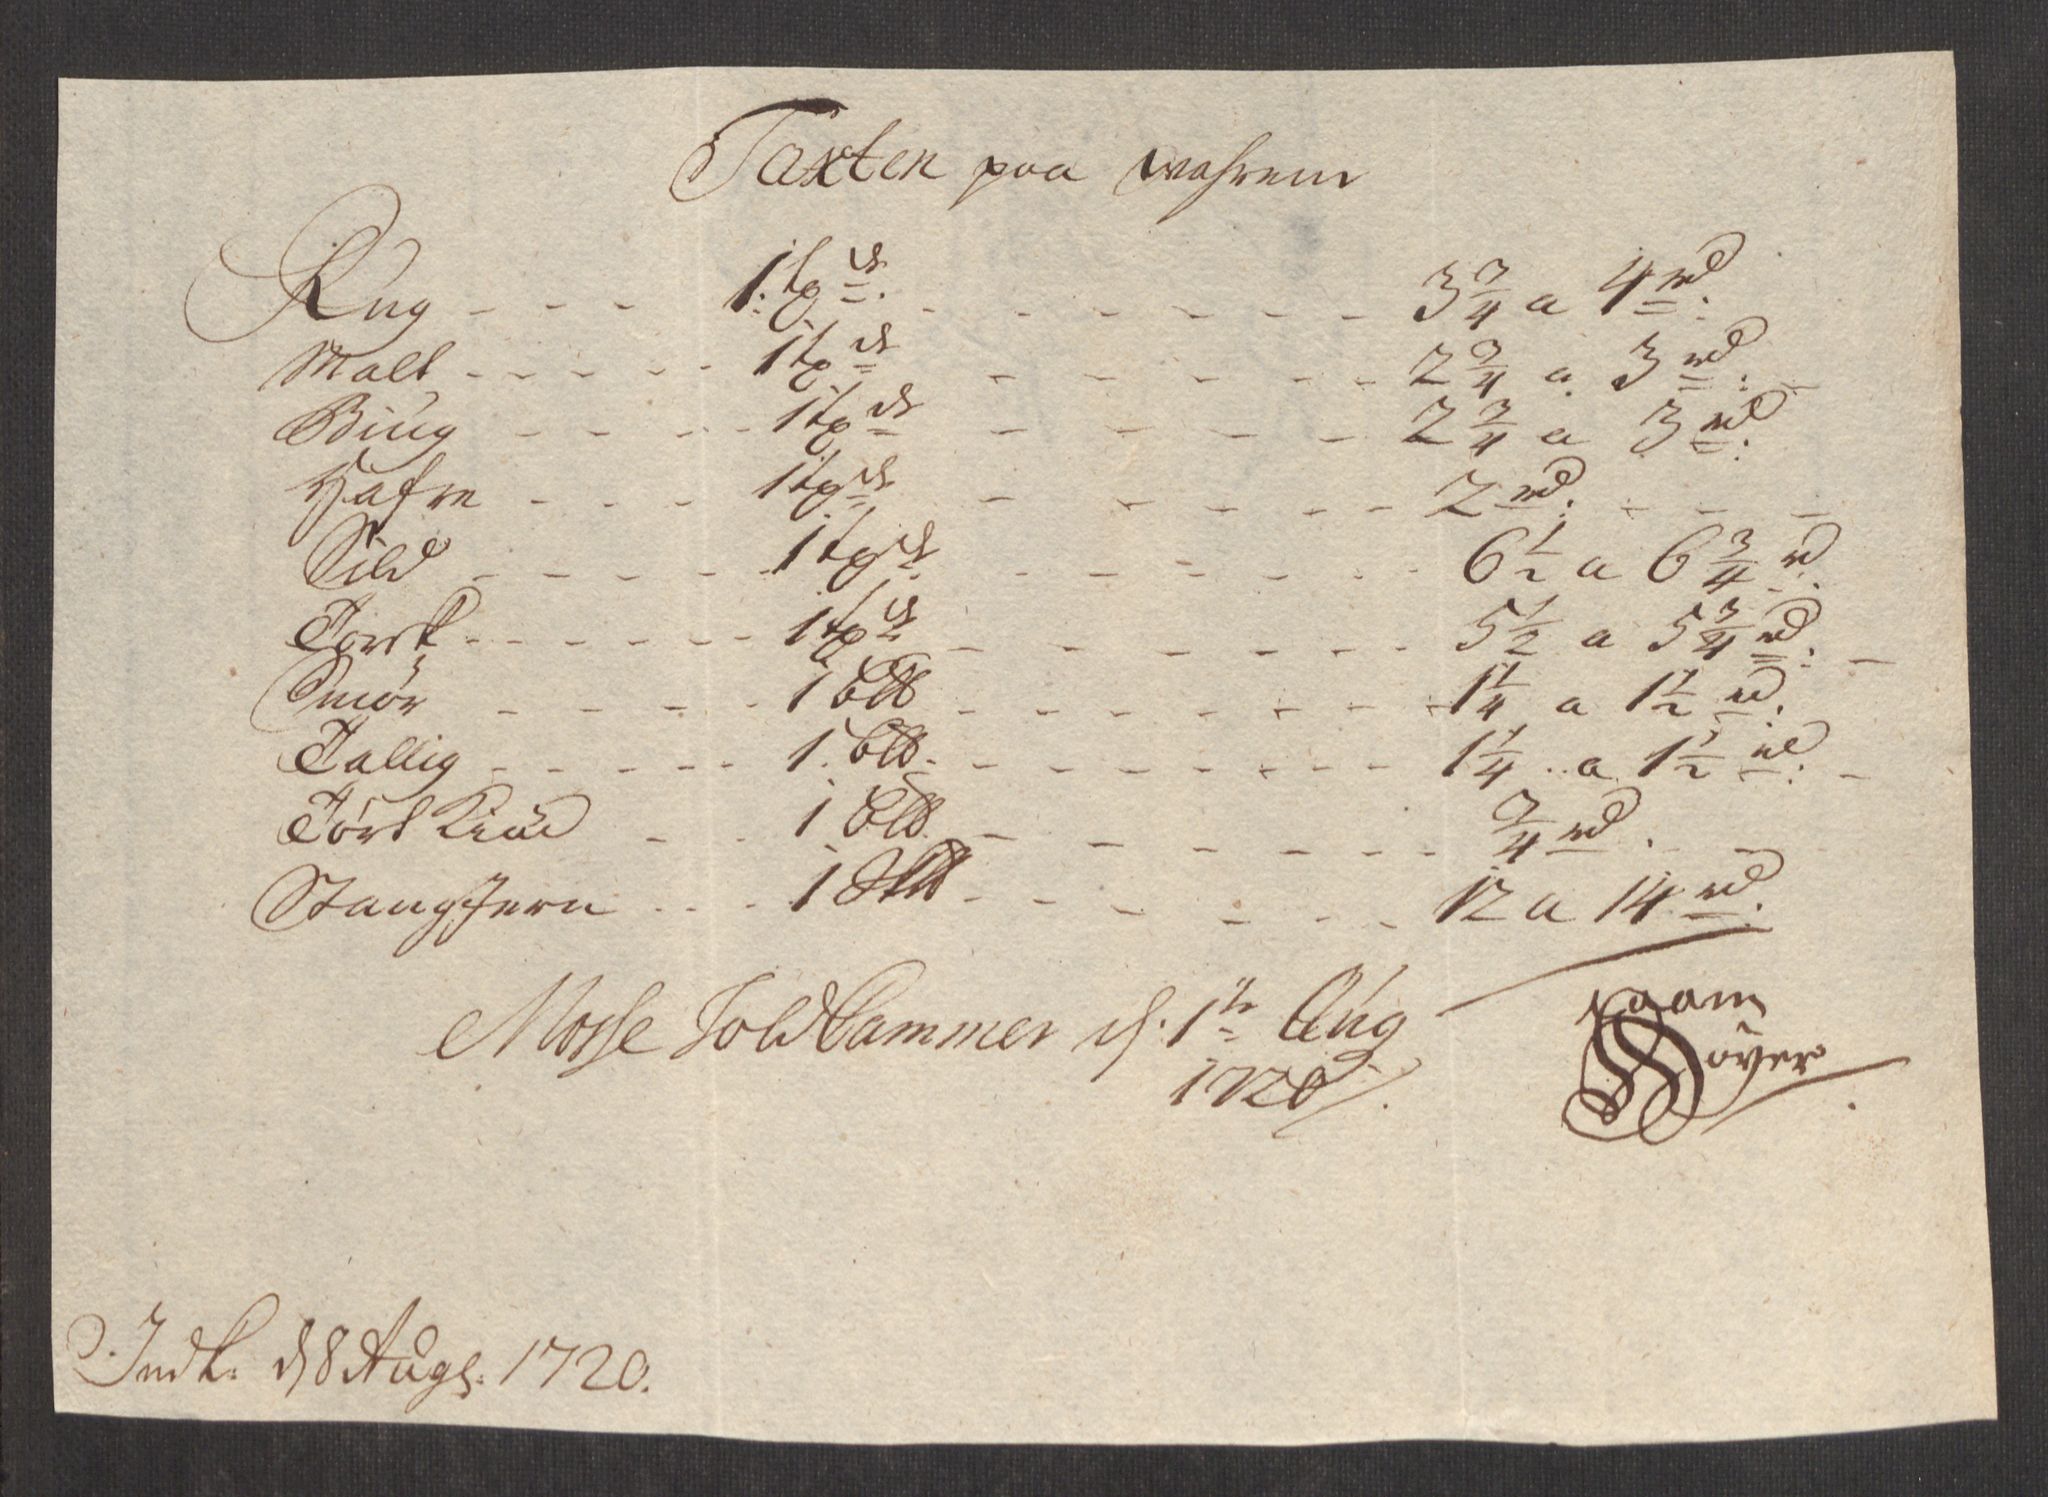 Taxten paa wahrene
Rug - - - 1. tøde. - - - 3 3/4 a 4 rd.
Malt - - - 1 tøde - - - 2 3/4 a 3 rd.
Biug - - - 1 tøde - - - 2 3/4 a 3 rd.
Hafre - - - 1 tøde - - - 2 rd.
Sild - - - 1 tøde - - - 6 1/2 a 6 3/4 rd.
Torsk - - - 1 tøde - - - 5 1/2 a 5 3/4 rd.
Smør - - - 1 - - - 1 1/4 a 1 1/2 rd.
Tallig - - - 1. - - - 1 1/4 a 1 1/2 rd.
Tört Kiöd - - 1 - - - 3/4 rd.
Stang Jern - - - 1 - - - 12 a 14 rd.
Mosse Told Cammer d. 1te Aug
1720
Höyer
Indk. d 8 Augs. 1720.